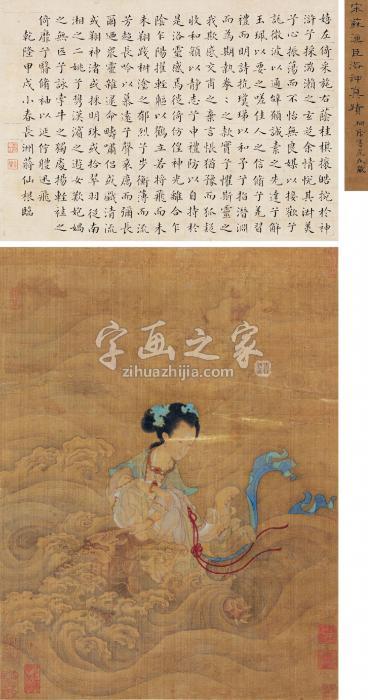 宋蘇漢臣洛神真蹟
嬉左倚采旄右蔭桂旗攘皓捥於神
滸兮採湍瀨之玄芝余情悅其淑美
兮心振蕩而不怡無良媒以接歡兮
託微波以通辭願誠素之先達兮解
玉珮以要之嗟佳人之信脩兮羌習
禮而明詩抗瓊珶以和予兮指潛淵
而為期執拳〻之款實兮懼斯靈之
我欺感交甫之棄言悵猶豫而狐疑
收和顏以靜志兮申禮防以自持於
是洛靈感焉徙倚彷徨神光離合乍
陰乍陽擢輕軀以鶴立若將飛而
未翔踐椒塗之郁烈兮步衡薄而流
芳超長吟以慕遠兮聲哀厲而彌長
爾迺衆靈雜遝命疇嘯侶或戲清流
或翔神渚或採明珠或拾翠羽從南
湘之二姚兮攜漢濱之遊女歎匏媧
之無匹兮詠牽牛之獨處揚輕袿之
倚靡兮翳脩袖以延佇體迅飛
乾隆甲戌小春長洲蔣仙根臨
字画之家
zihuazhijia.com